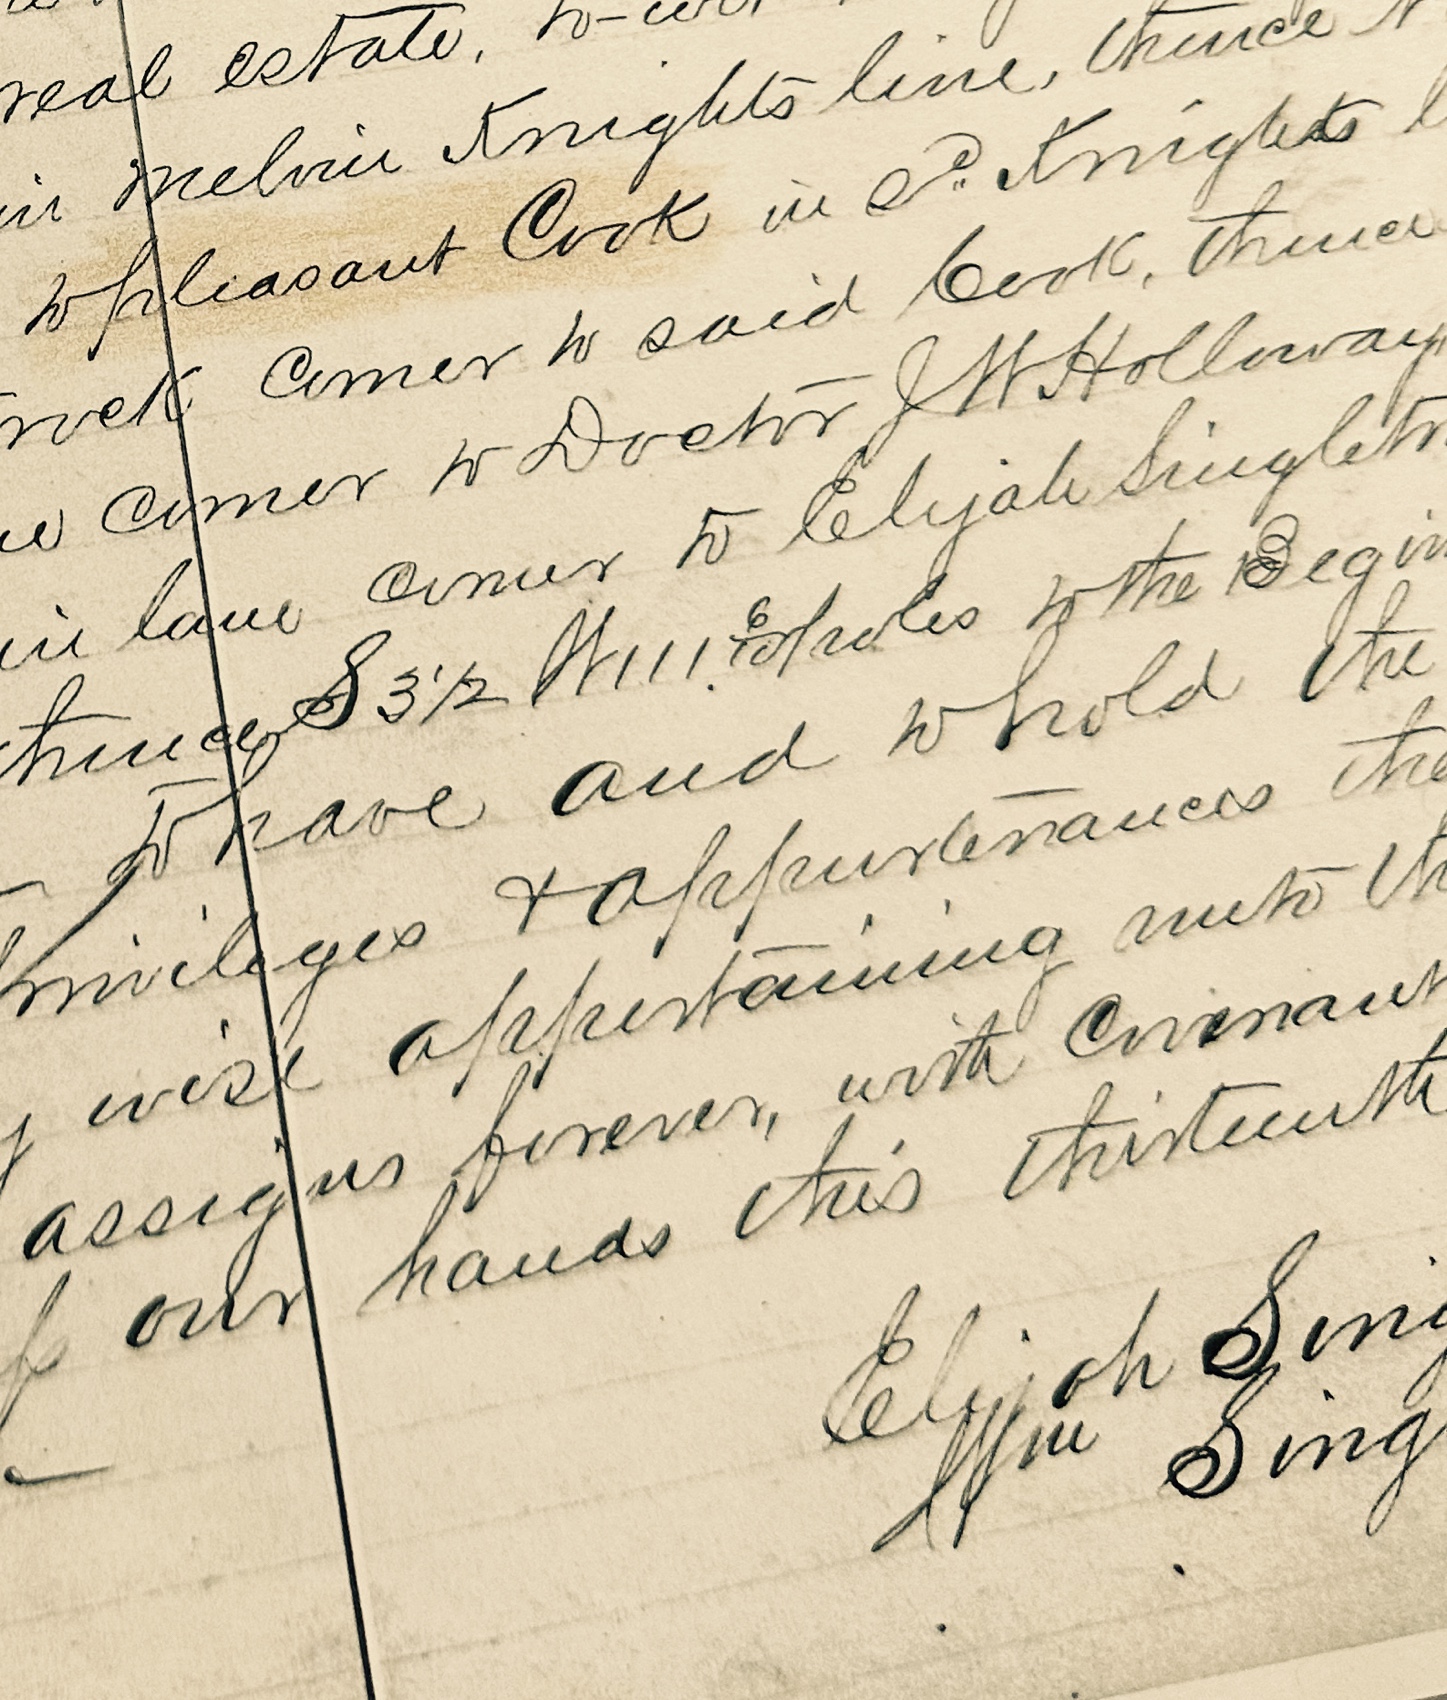 real estate, to-wit
in Melvin Knights line, thence
to pleasant Cook in P. Knights
rock corner to said Cook, thence
corner to Doctor J W Holloway
in lane corner to Elijah Singleton
thence S 3 1/2 W 111. poles to the Begin
To have and to hold the
privileges & appurtenances the
wise appertaining unto th
assigns forever, with Covenant
of our hands this thirteenth
Elijah Sing
Wm Sing